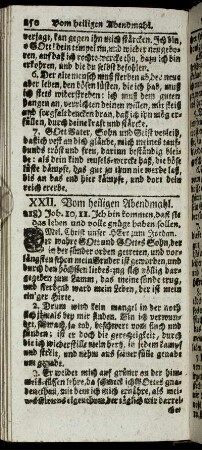 250 Vom heiligen Abendmahl.
verjagt, kan gegen ihn mich stärcken. Ich bin,
o GOtt! dein tempel nu, und wieder neu gebo-
ren, auf daß ich rechte wercke thu, dazu ich bin
erkohren, und die du selbst befohlen.
6. Der alte mensch muß sterben ab, der neue
aber leben, den bösen lüsten, die ich hab, muß
ich stets widerstreben: ich muß dem guten
hangen an, verrichten deinen willen, mit fleiß
und sorgfalt dencken dran, daß ich ihn mög er-
füllen, durch deine kraft und stärcke.
7. GOtt Vater, Sohn und Geist verleih,
daß ich vest an dich gläube, mich meines tauf-
bunds tröst und freu, darinn beständig blei-
be: als dein kind wüsels-wercke haß, die böse
lüste dämpfe, das gut zu thun nie werde laß,
bis an das end hier kämpfe, und dort dein
reich ererbe.
XXII. Vom heiligen Abendmahl.
218) Joh. 10, 11. Ich bin kommen, daß sie
das leben und volle gnüge haben sollen.
Mel. Christ unser HErr zum Jordan.
Der wahre GOtt und GOttes Sohn, der
in der sünder orden getreten, und vor-
längsten schon mein bruder ist geworden, und
durch den höchsten liebes-zug sich völlig dar-
gegeben zum Lamm, das meine sünde trug,
und sterbend ward mein Leben, der ist mein
ein'ger Hirte.
2. Drum wird kein mangel in der noth
sich jemals bey mir finden. Bin ich verwun-
det, schwach, ja tod, beschwert von fluch und
sünden: ist er doch die gerechtigkeit, durch
die ich widerstille mein hertz, in jedem kampf
und streit, und nehm aus seiner fülle gnade
um gnade.
3. Er weidet mich auf grüner au der him-
mels-süssen lehre, da schmeck ich GOttes gna-
denthau, mit dem ich mich ernähre, als mei-
eigenthum, der täglich mir darrei-
chet